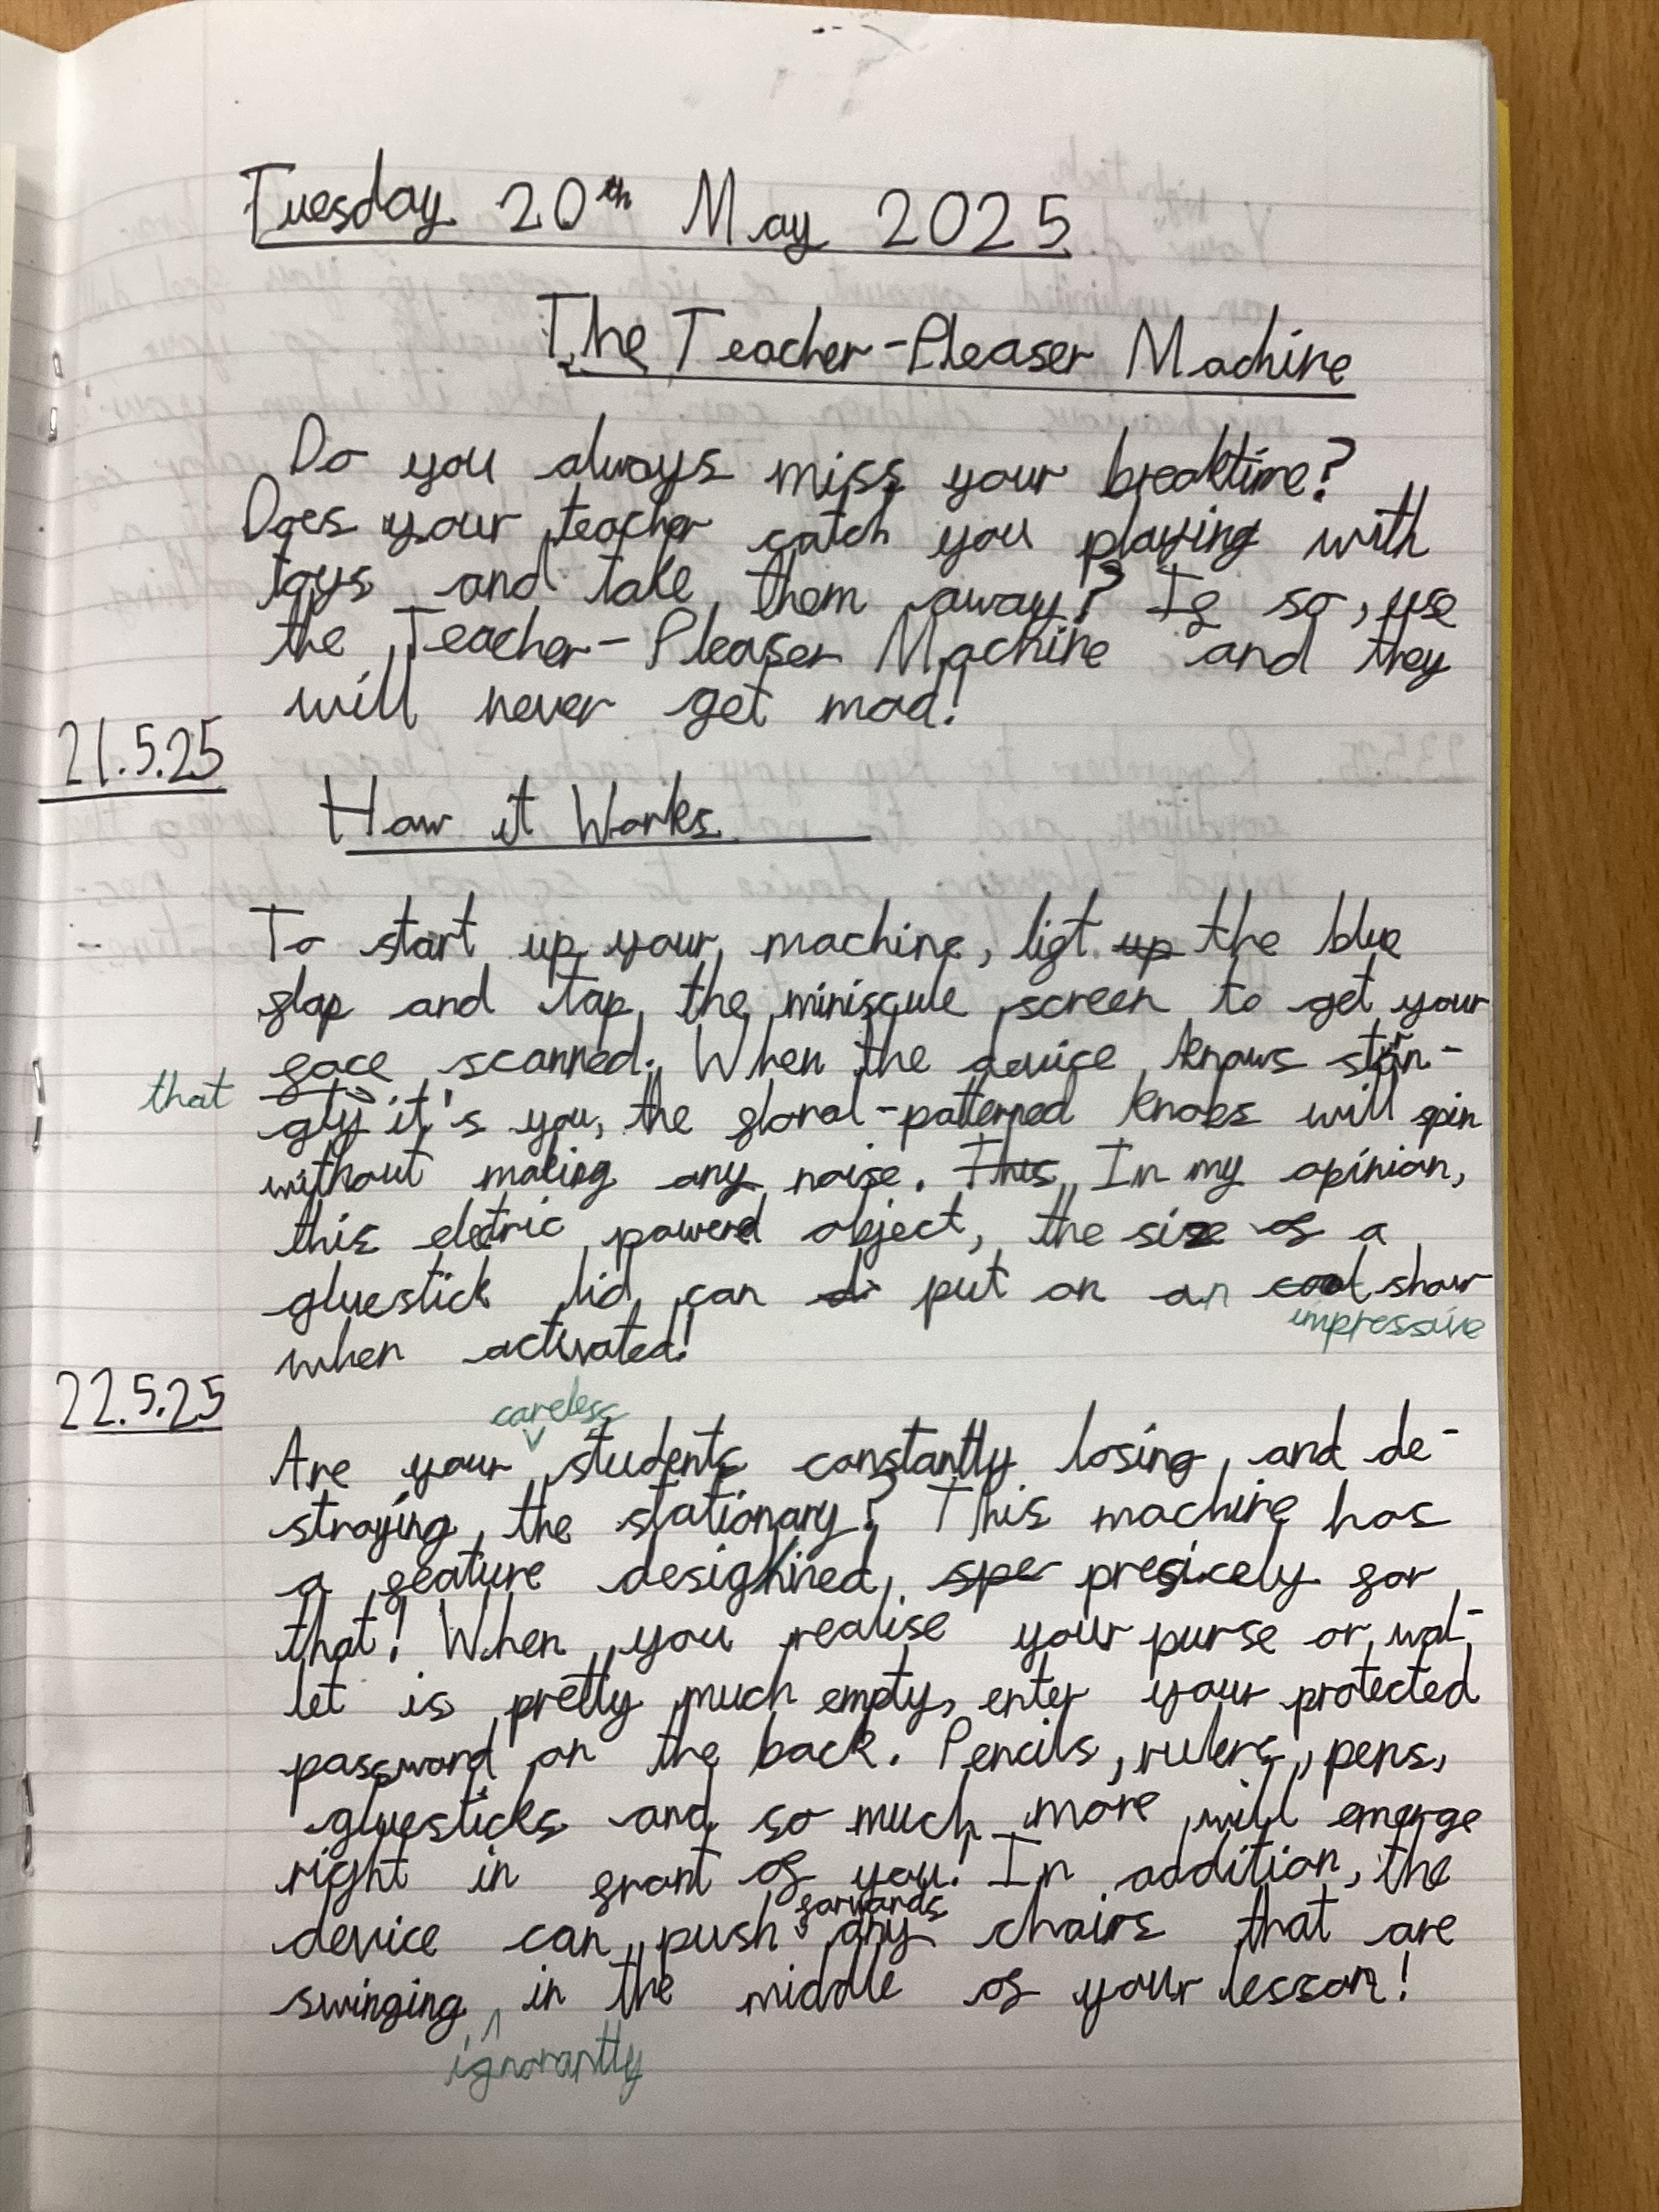 Tuesday 20th May 2025
The Teacher-Pleaser Machine
Do you always miss your breaktime?
Does your teacher catch you playing with
toys and take them away? If so, use
the Teacher-Pleaser Machine and they
will never get mad!
21.5.25
How it Works
To start up your machine, lift up the blue
flap and tap the miniscule screen to get your
face scanned. When the device knows
that
it's you, the floral-patterned knobs will spin
without making any noise. This In my opinion,
this eletric powered object, the size of a
gluestick lid can put on an cool show
impressive
when activated!
22.5.25
careless
Are your students constantly losing and de-
stroying the stationary? This machine has
a feature designed spe presicely for
that! When you realise your purse or wal-
let is pretty much empty, enter your protected
password on the back. Pencils, rulers, pens,
gluesticks and so much more will emerge
right in front of you! In addition, the
forwards
device can push any chairs that are
swinging in the middle of your lesson!
ignorantly